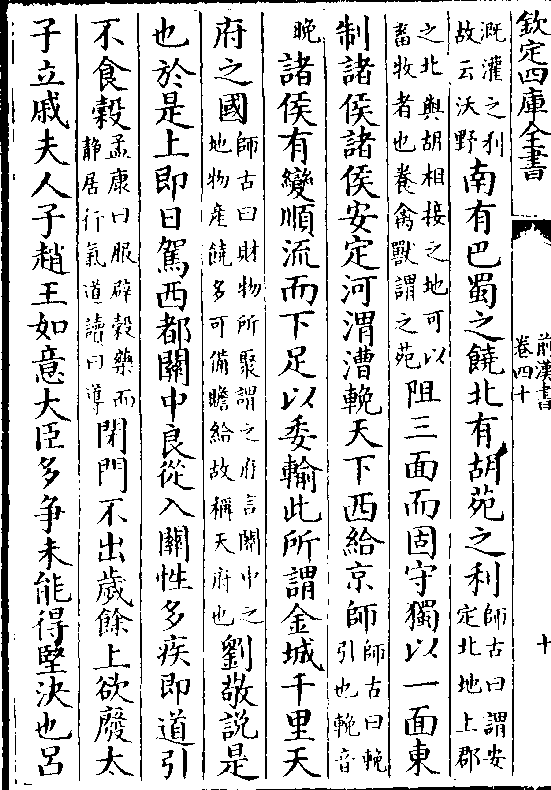 欽定四庫全書
前漢書
卷四十
十
溉灌之利
故云沃野
南有巴蜀之饒北有胡苑之利
師古曰謂安
定北地上郡
之北與胡相接之地可以
畜牧者也養禽獸謂之苑
阻三面而固守獨以一面東
制諸侯諸侯安定河渭漕輓天下西給京師
師古曰輓
引也輓音
晚
諸侯有變順流而下足以委輸此所謂金城千里天
府之國
師古曰財物所聚謂之府言關中之
地物産饒多可備贍給故稱天府也
劉敬說是
也於是上即日駕西都關中良從入關性多疾即道引
不食穀
孟康曰服辟穀藥而
静居行氣道讀曰導
閉門不出歳餘上欲廢太
子立戚夫人子趙王如意大臣多争未能得堅決也吕